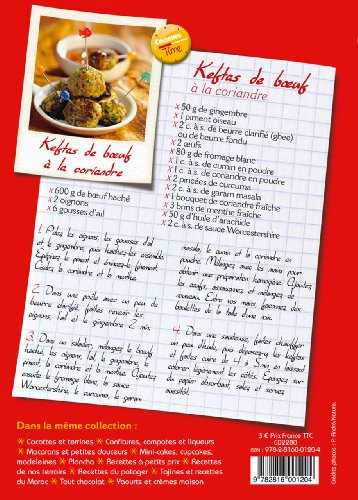 Gourmet
Time
Keftas de bœuf
à la coriandre
Keftas de bœuf
à la coriandre
x 600 g de bœuf haché
x 2 oignons
x 6 gousses d'ail
x 50 g de gingembre
x 1 piment oiseau
x 2 c. à s. de beurre clarifié (ghee)
ou de beurre fondu
x 2 œufs
x 80 g de fromage blanc
x 1 c. à s. de cumin en poudre
x 1 c. à s. de coriandre en poudre
x 2 pincées de curcuma
x 2 c. à s. de garam masala
x 1 bouquet de coriandre fraîche
x 3 brins de menthe fraîche
x 50 g d'huile d'arachide
x 2 c. à s. de sauce Worcestershire
1. Pelez les oignons, les gousses d'ail
et le gingembre, puis hachez-les ensemble.
Épépinez le piment et émincez-le finement.
Ciselez la coriandre et la menthe.
2. Dans une poêle avec un peu de
beurre clarifié, faites revenir les
oignons, l'ail et le gingembre 2 min.
3. Dans un saladier, mélangez le bœuf
haché, les oignons, l'ail, le gingembre,
le piment, la coriandre et la menthe. Ajoutez
ensuite le fromage blanc, la sauce
Worcestershire, le curcuma, le garam
masala, le cumin et la coriandre en
poudre. Mélangez avec les mains pour
obtenir une préparation homogène. Ajoutez
les œufs, assaisonnez et mélangez de
nouveau. Entre vos mains, façonnez des
boulettes de la taille d'une noix.
4. Dans une sauteuse, faites chauffer
un peu d'huile, puis déposez-y les keftas
et faites cuire de 4 à 5 min en laissant
dorer de chaque côté. Égouttez sur du
papier absorbant, salez et servez
Dans la même collection :
Cocottes et terrines Confitures, compotes et liqueurs
Macarons et petites douceurs Mini-cakes, cupcakes,
madeleines Plancha Recettes à petits prix Recettes
de nos terroirs Recettes du potager Tajines et recettes
du Maroc Tout chocolat Yaourts et crèmes maison
5 € Prix France TTC
CO2280
ISBN : 978-2-8160-0120-4
9 782816 001204